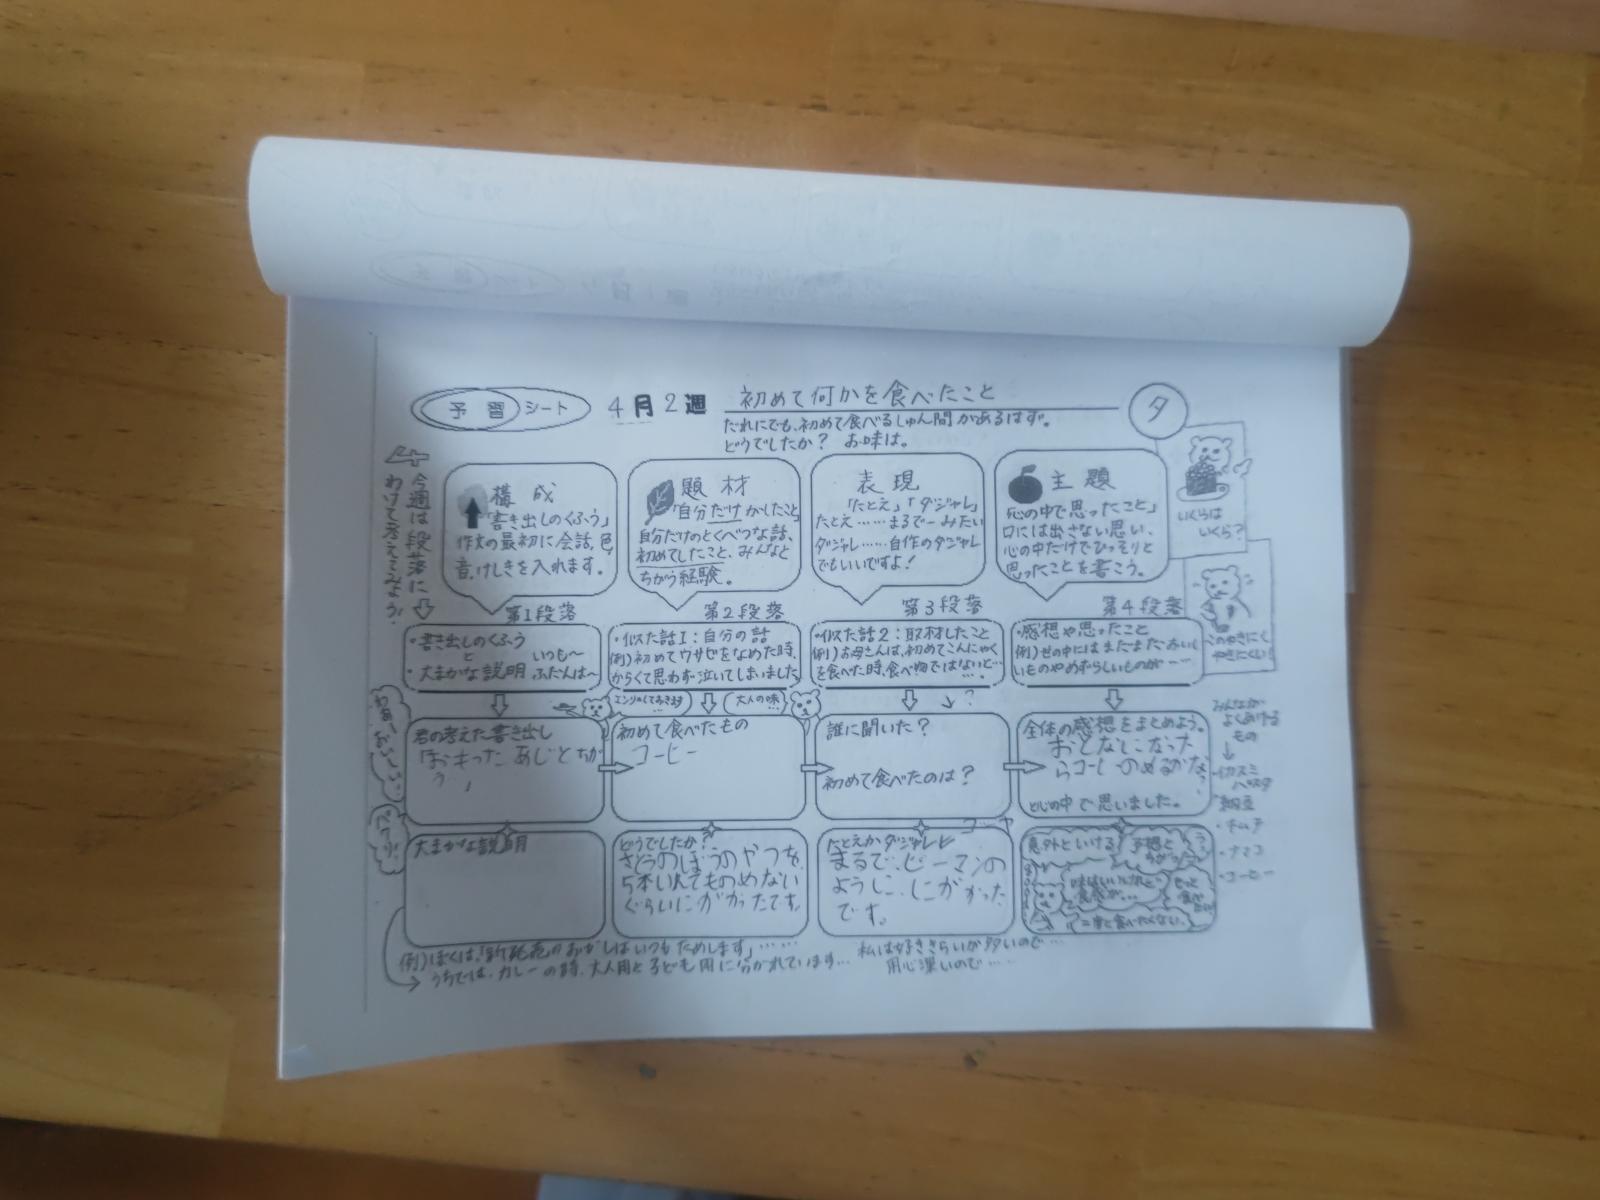 予習シート 4月2週 初めて何かを食べたこと タ
だれにでも、初めて食べるしゅん間があるはず。
どうでしたか? お味は。
今週は段落に
わけて考えてみよう!
構成
「書き出しのくふう」
作文の最初に会話、色、
音、けしきを入れます。
題材
「自分だけがしたこと」
自分だけのとくべつな話、
初めてしたこと、みんなと
ちがう経験。
表現
「たとえ」「ダジャレ」
たとえ……まるで〜みたい
ダジャレ……自作のダジャレ
でもいいですよ!
主題
「心の中で思ったこと」
口には出さない思い、
心の中だけでひっそりと
思ったことを書こう。
いくらは
いくら?
このやきにく
やきにくい!
第1段落
・書き出しのくふう
と
・大まかな説明
いつも〜
ふだんは〜
第2段落
・似た話1:自分の話
例)初めてワサビをなめた時、
からくて思わず泣いてしまいました
第3段落
・似た話2:取材したこと
例)お母さんは、初めてこんにゃく
を食べた時、食べ物ではないと…
第4段落
・感想や思ったこと
例)世の中にはまだまだおいし
いものやめずらしいものが……
大人の味…
君の考えた書き出し
「おもった あじとちが
う、」
初めて食べたもの
コーヒー
誰に聞いた?
初めて食べたのは?
全体の感想をまとめよう。
おとなになった
らコーヒーのめるかな?
と心の中で思いました。
みんなが
よくあげる
もの
・イカスミ
パスタ
・納豆
・キムチ
・ナマコ
・コーヒー
わあ、おいしい!
大まかな説明
どうでしたか?
さとうのぼうのやつを
5本いれてものめない
ぐらいにがかったです。
たとえかダジャレ
まるで、ピーマンの
ように、にがかった
です。
意外といける
予想と
ちがう
味はいいけれど
食感が…
もっと
食べたい
二度と食べたくない。
例)ぼくは、「新発売のおかしはいつもためします」……
うちでは、カレーの時、大人用と子ども用に分かれています…
私は好ききらいが多いので…
用心深いので……